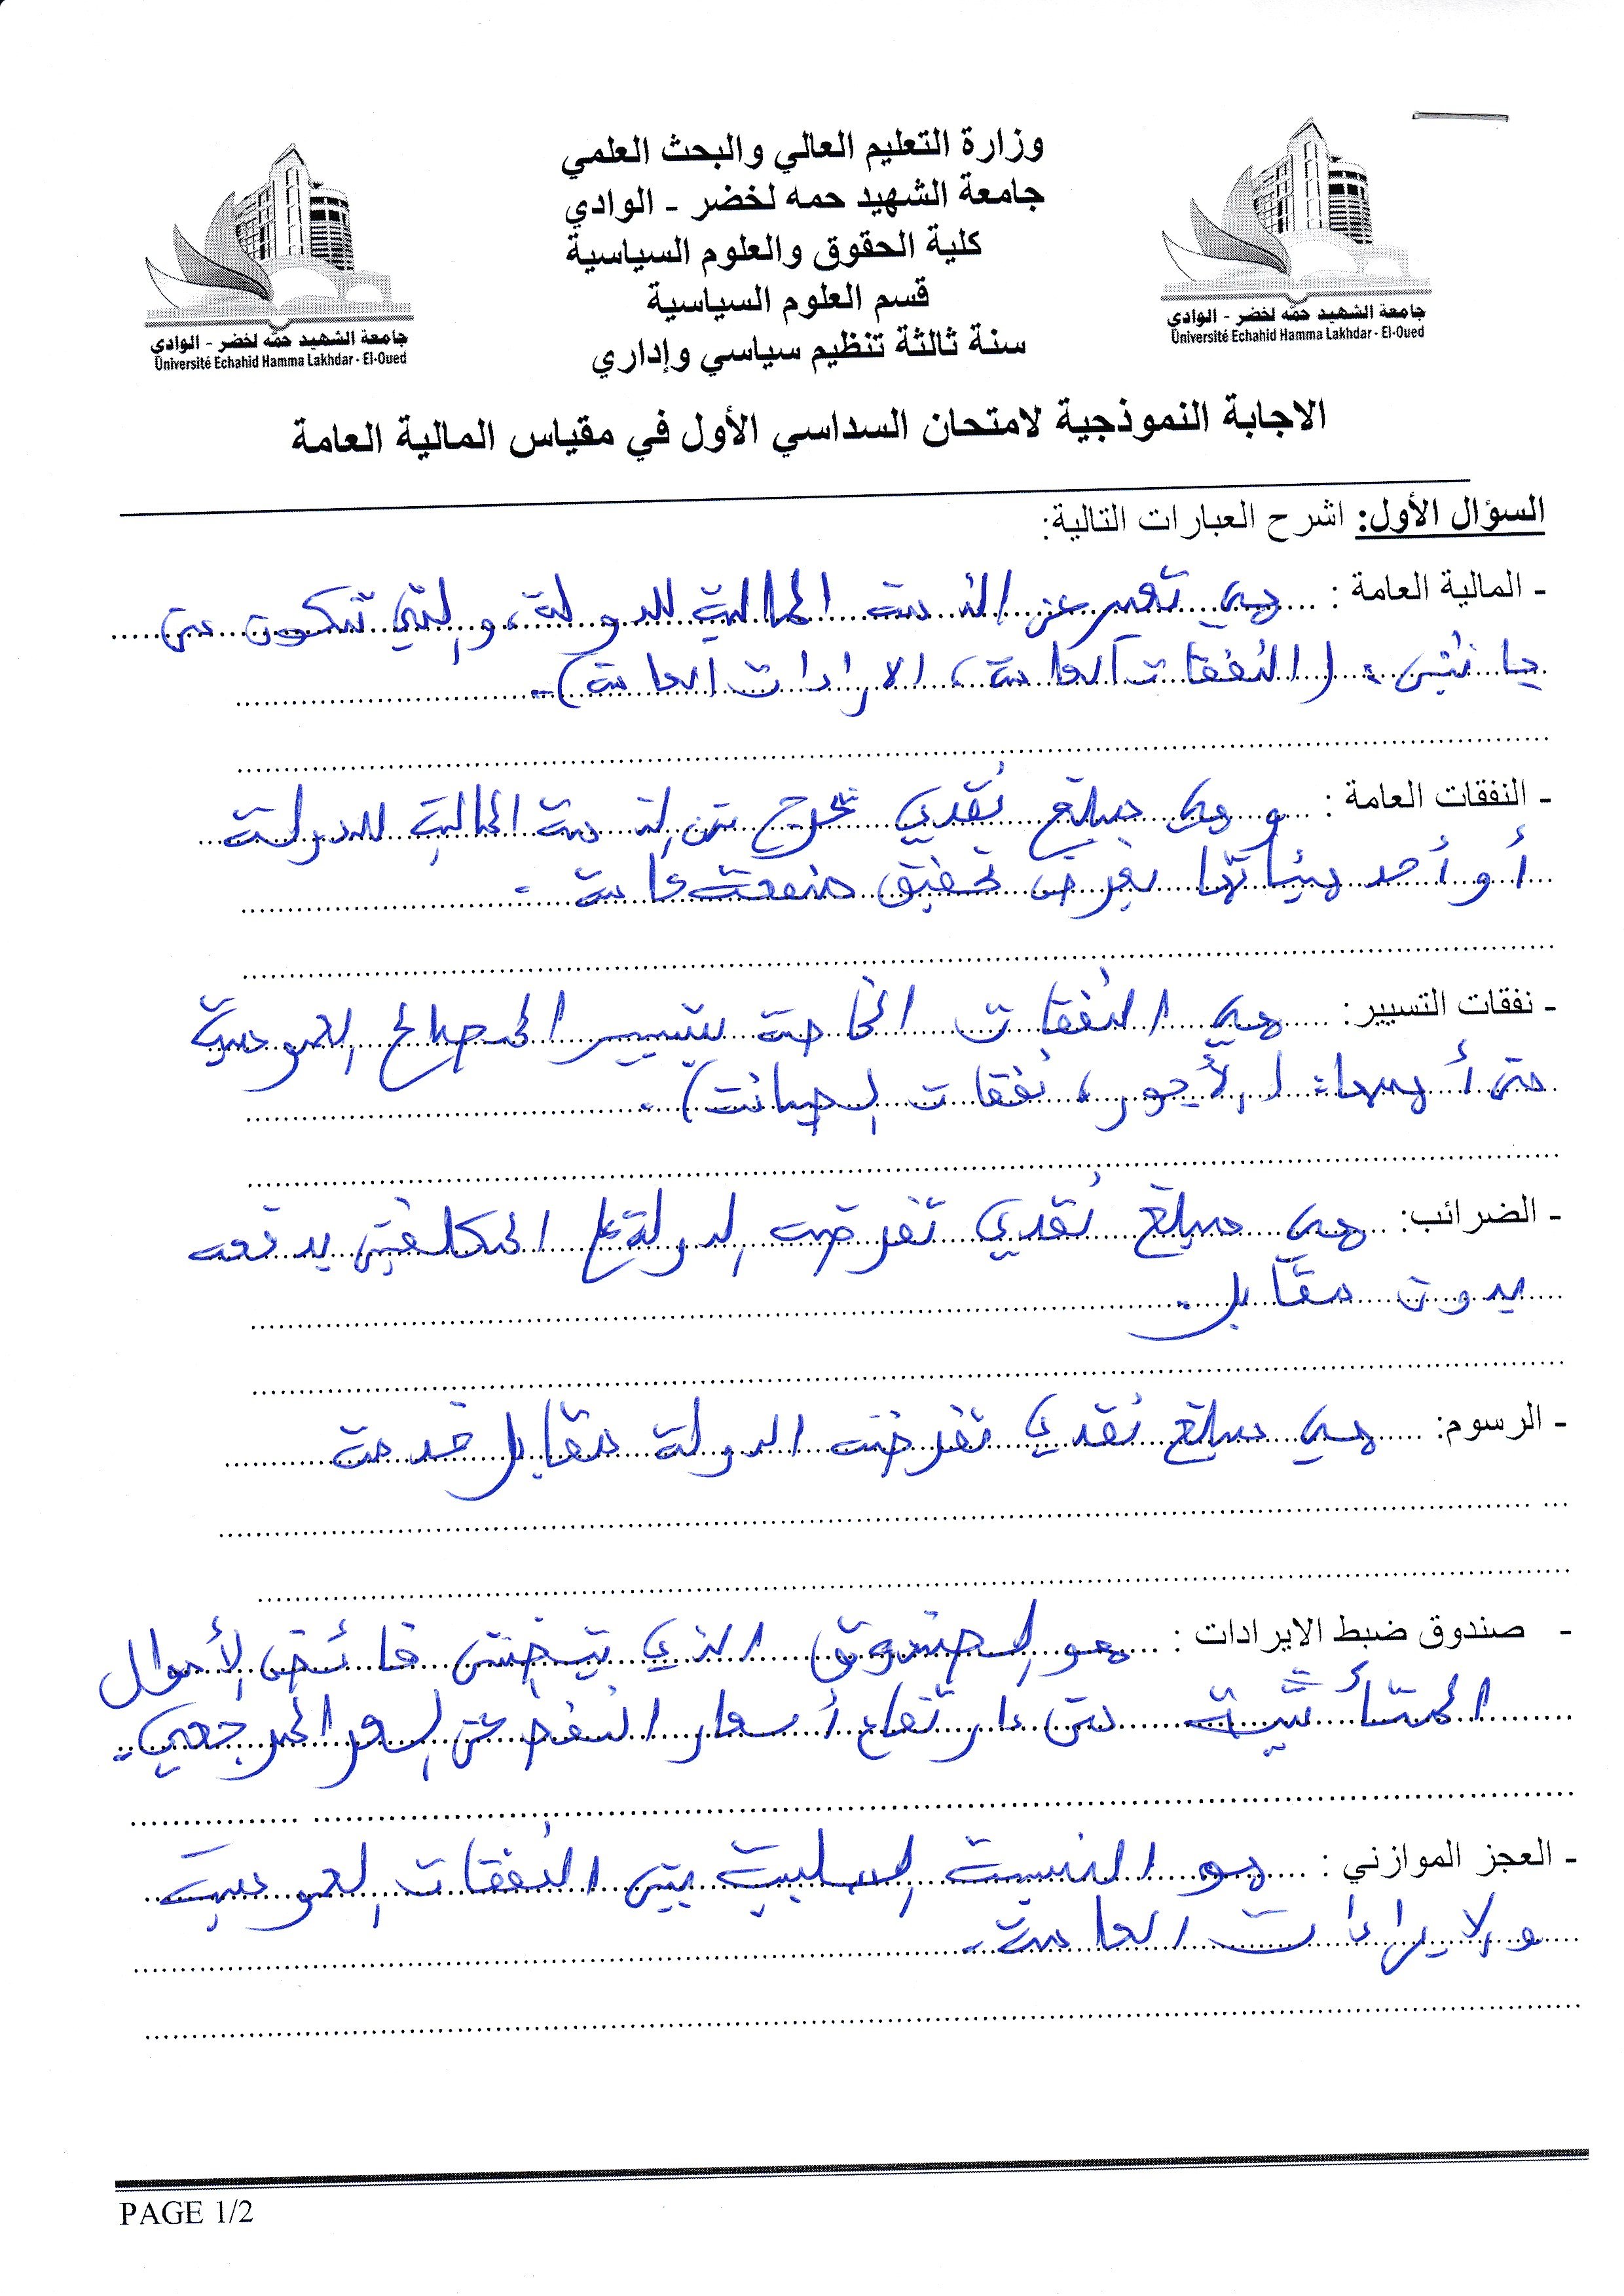 وزارة التعليم العالي والبحث العلمي
جامعة الشهيد حمه لخضر - الوادي
كلية الحقوق والعلوم السياسية
قسم العلوم السياسية
سنة ثالثة تنظيم سياسي وإداري
جامعة الشهيد حمّه لخضر - الوادي
Université Echahid Hamma Lakhdar - El-Oued
جامعة الشهيد حمّه لخضر - الوادي
Université Echahid Hamma Lakhdar - El-Oued
الاجابة النموذجية لامتحان السداسي الأول في مقياس المالية العامة
السؤال الأول: اشرح العبارات التالية:
- المالية العامة : هي تعبر عن الذمة المالية للدولة، والتي تتكون من
جانبين : (النفقات العامة، الايرادات العامة).
- النفقات العامة : وهي مبلغ نقدي تخرج من الذمة المالية للدولة
أو أحد هيئاتها بغرض تحقيق منفعة عامة .
- نفقات التسيير: هي النفقات الخاصة بتسيير المصالح العمومية
من أهمها: (الأجور، نفقات الصيانة).
- الضرائب: هي مبلغ نقدي تفرضه الدولة على المكلفين يدفعه
بدون مقابل.
- الرسوم: هي مبلغ نقدي تفرضه الدولة مقابل خدمة
- صندوق ضبط الايرادات : هو الصندوق الذي فائض الأموال
المتأتية من ارتفاع أسعار النفط عن السعر المرجعي.
- العجز الموازني : هو النسبة السلبية بين النفقات العمومية
والايرادات العامة.
PAGE 1/2